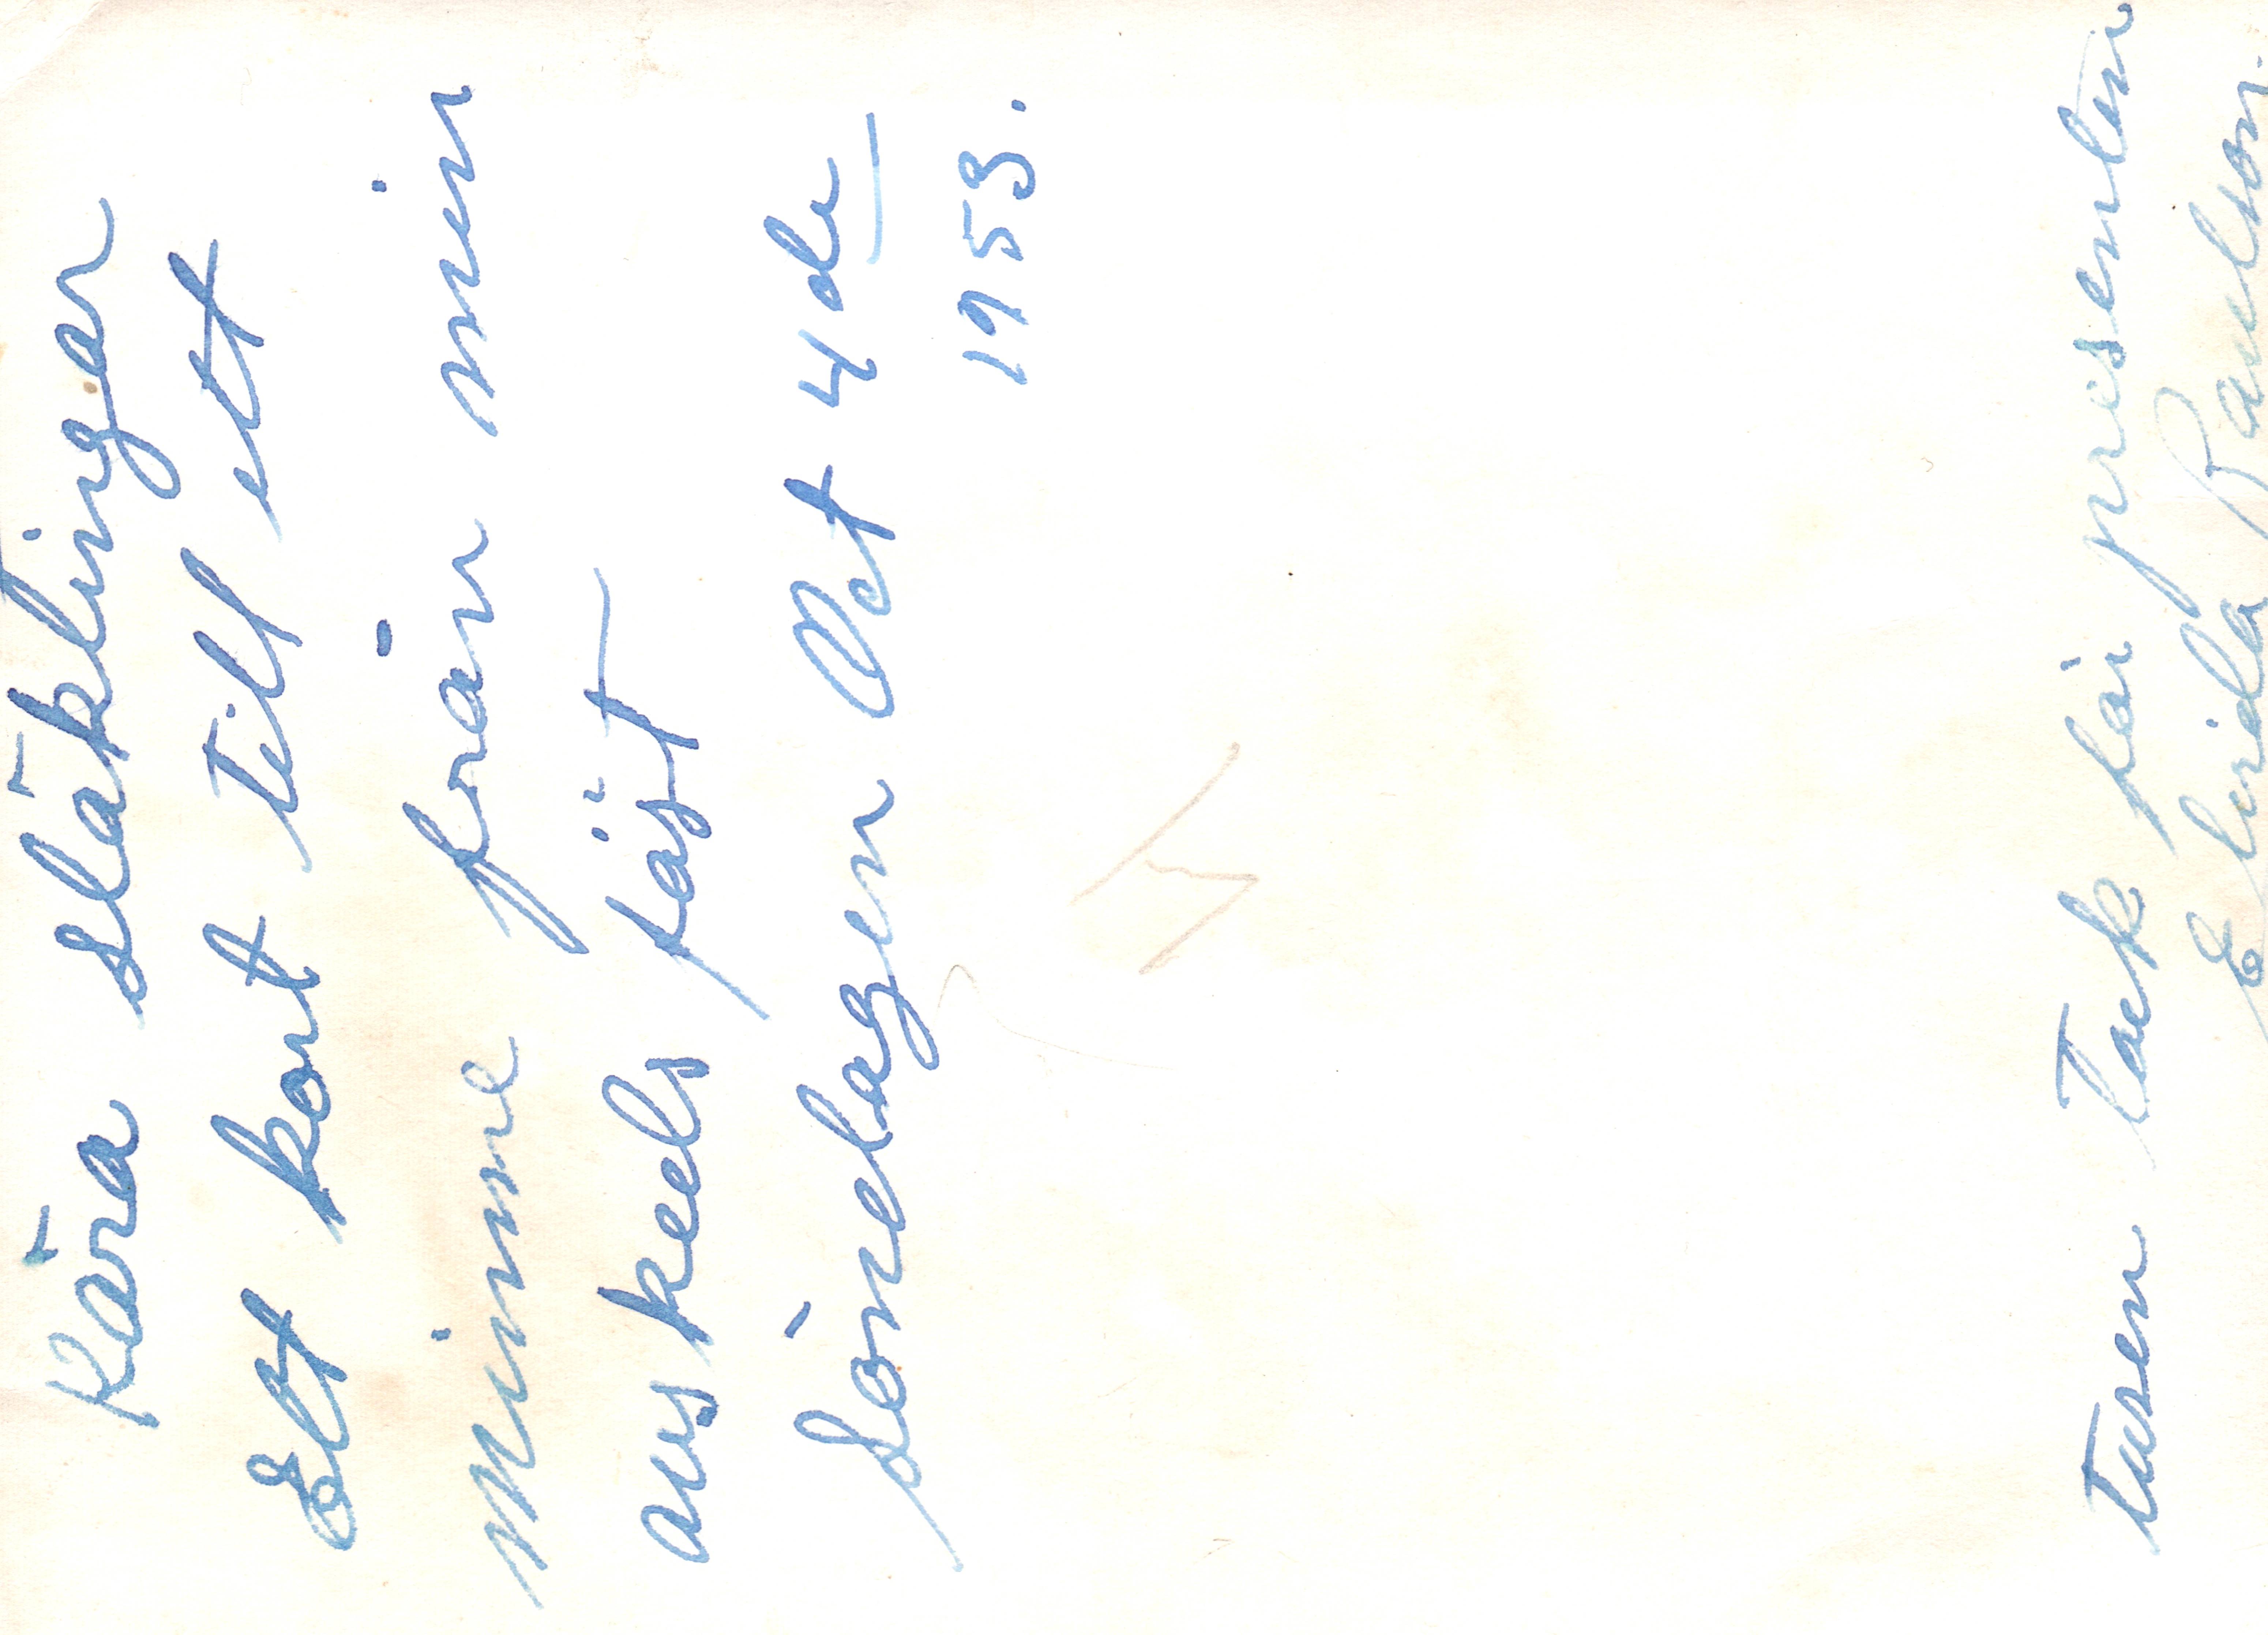 Kära släklingar
Ett kort till ett
Minne från min
avskeds fäst
Sönelagen Oct 4de
1953.
Tusen Tack för presenten
Elvida Paulson.